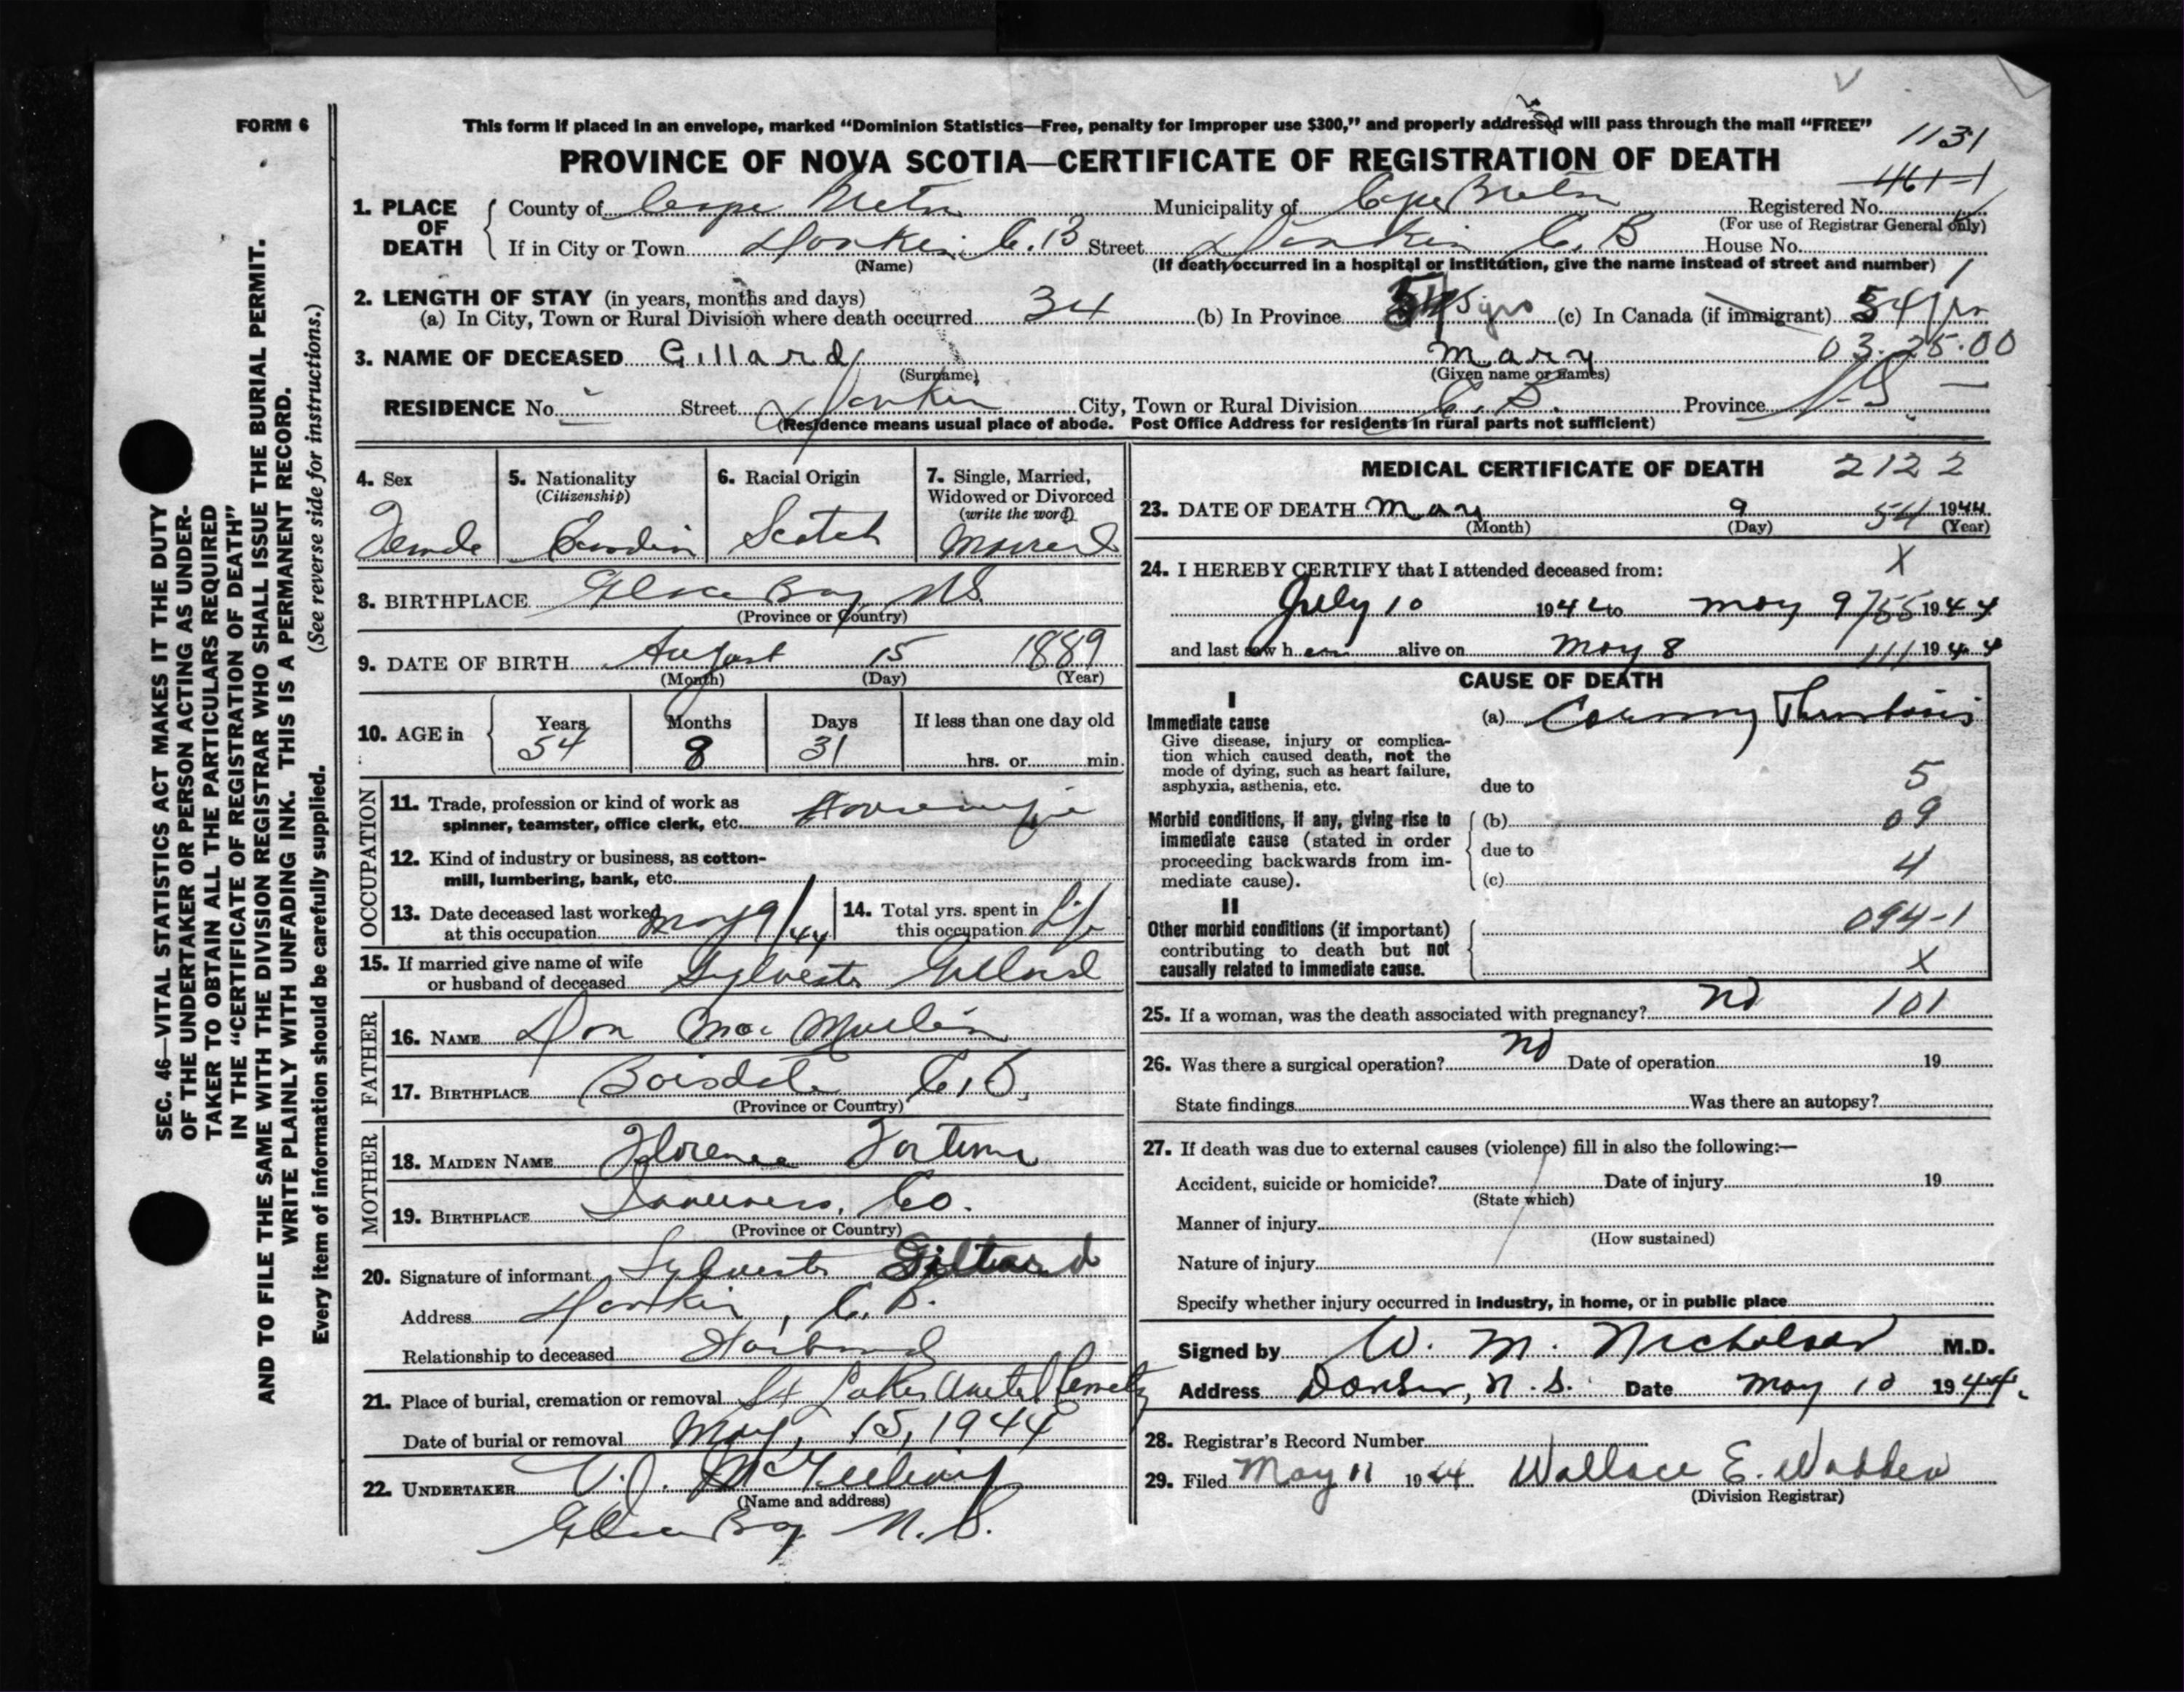 FORM 6
This form if placed in an envelope, marked “Dominion Statistics—Free, penalty for improper use $300,” and properly addressed will pass through the mail “FREE”
PROVINCE OF NOVA SCOTIA—CERTIFICATE OF REGISTRATION OF DEATH
1131
461-1
1. PLACE OF DEATH
County of Cape Breton Municipality of Cape Breton Registered No.
(For use of Registrar General only)
If in City or Town Donkin C.B Street Donkin C.B House No.
(Name) (If death occurred in a hospital or institution, give the name instead of street and number) 1
2. LENGTH OF STAY (in years, months and days)
(a) In City, Town or Rural Division where death occurred 34 (b) In Province yrs (c) In Canada (if immigrant) 54 yrs
3. NAME OF DECEASED Gillard Mary 03.25.00
(Surname) (Given name or names)
RESIDENCE No. Street Donkin City, Town or Rural Division C.B. Province N.S.
(Residence means usual place of abode. Post Office Address for residents in rural parts not sufficient)
4. Sex
Female
5. Nationality
(Citizenship)
6. Racial Origin
Scotch
7. Single, Married, Widowed or Divorced
(write the word)
Married
8. BIRTHPLACE Glace Bay N.S.
(Province or Country)
9. DATE OF BIRTH August 15 1889
(Month) (Day) (Year)
10. AGE in
Years Months Days If less than one day old
54 8 31 hrs. or min.
OCCUPATION
11. Trade, profession or kind of work as
spinner, teamster, office clerk, etc. Housewife
12. Kind of industry or business, as cotton-
mill, lumbering, bank, etc.
13. Date deceased last worked
at this occupation May 9/44
14. Total yrs. spent in
this occupation Life
15. If married give name of wife
or husband of deceased Sylvester Gillard
FATHER
16. NAME Don Mac Mullin
17. BIRTHPLACE Boisdale C.B.
(Province or Country)
MOTHER
18. MAIDEN NAME Florence
19. BIRTHPLACE Inverness, Co.
(Province or Country)
20. Signature of informant Sylvester Gillard
Address Donkin, C.B.
Relationship to deceased Husband
21. Place of burial, cremation or removal St Lukes United Cemetry
Date of burial or removal May, 15, 1944
22. UNDERTAKER V.J. McGillivary
(Name and address)
Glace Bay N.S.
MEDICAL CERTIFICATE OF DEATH 2122
23. DATE OF DEATH May 9 54 1944
(Month) (Day) (Year)
X
24. I HEREBY CERTIFY that I attended deceased from:
July 10 1942 to May 9 755 1944
and last saw h er alive on May 8 111 1944
CAUSE OF DEATH
I
Immediate cause
Give disease, injury or complica-
tion which caused death, not the
mode of dying, such as heart failure,
asphyxia, asthenia, etc.
(a) Coronary Thrombosis
due to 5
Morbid conditions, if any, giving rise to
immediate cause (stated in order
proceeding backwards from im-
mediate cause).
(b) 09
due to 4
(c)
II
Other morbid conditions (if important)
contributing to death but not
causally related to immediate cause.
094-1
X
25. If a woman, was the death associated with pregnancy? no 101
26. Was there a surgical operation? no Date of operation 19
State findings Was there an autopsy?
27. If death was due to external causes (violence) fill in also the following:—
Accident, suicide or homicide? Date of injury 19
(State which)
Manner of injury
(How sustained)
Nature of injury
Specify whether injury occurred in industry, in home, or in public place
Signed by W. M. Nicholson M.D.
Address Donkin, N.S. Date May 10 1944.
28. Registrar's Record Number
29. Filed May 11 1944 Wallace E. Wadden
(Division Registrar)
SEC. 46—VITAL STATISTICS ACT MAKES IT THE DUTY
OF THE UNDERTAKER OR PERSON ACTING AS UNDER-
TAKER TO OBTAIN ALL THE PARTICULARS REQUIRED
IN THE “CERTIFICATE OF REGISTRATION OF DEATH”
AND TO FILE THE SAME WITH THE DIVISION REGISTRAR WHO SHALL ISSUE THE BURIAL PERMIT.
WRITE PLAINLY WITH UNFADING INK. THIS IS A PERMANENT RECORD.
Every item of information should be carefully supplied. (See reverse side for instructions.)